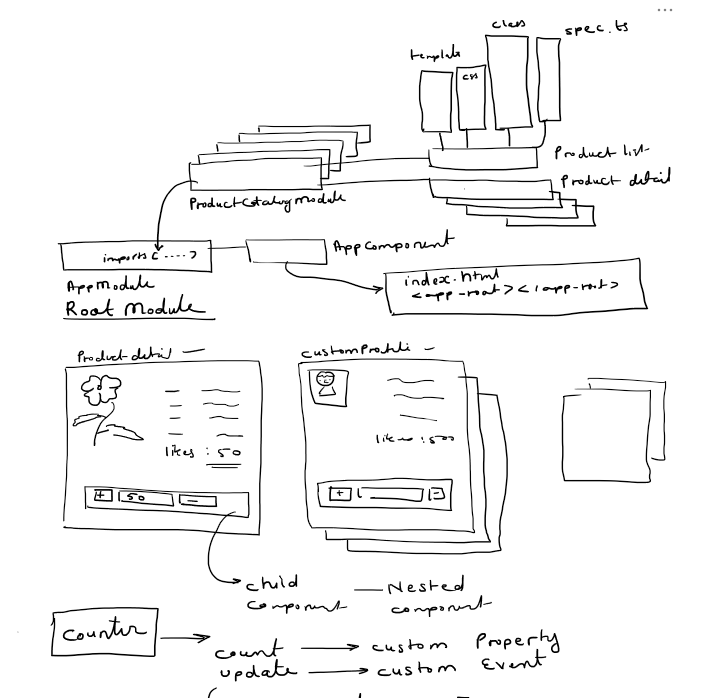 class
spec.ts
template
css
Product list
Product detail
ProductCatalogModule
imports [ .... ]
AppComponent
AppModule
Root Module
index.html
<app-root></app-root>
Product detail —
likes : 50
+ 50 —
likes : 500
+ -
child — Nested
component component
Counter
count → custom Property
update → custom Event